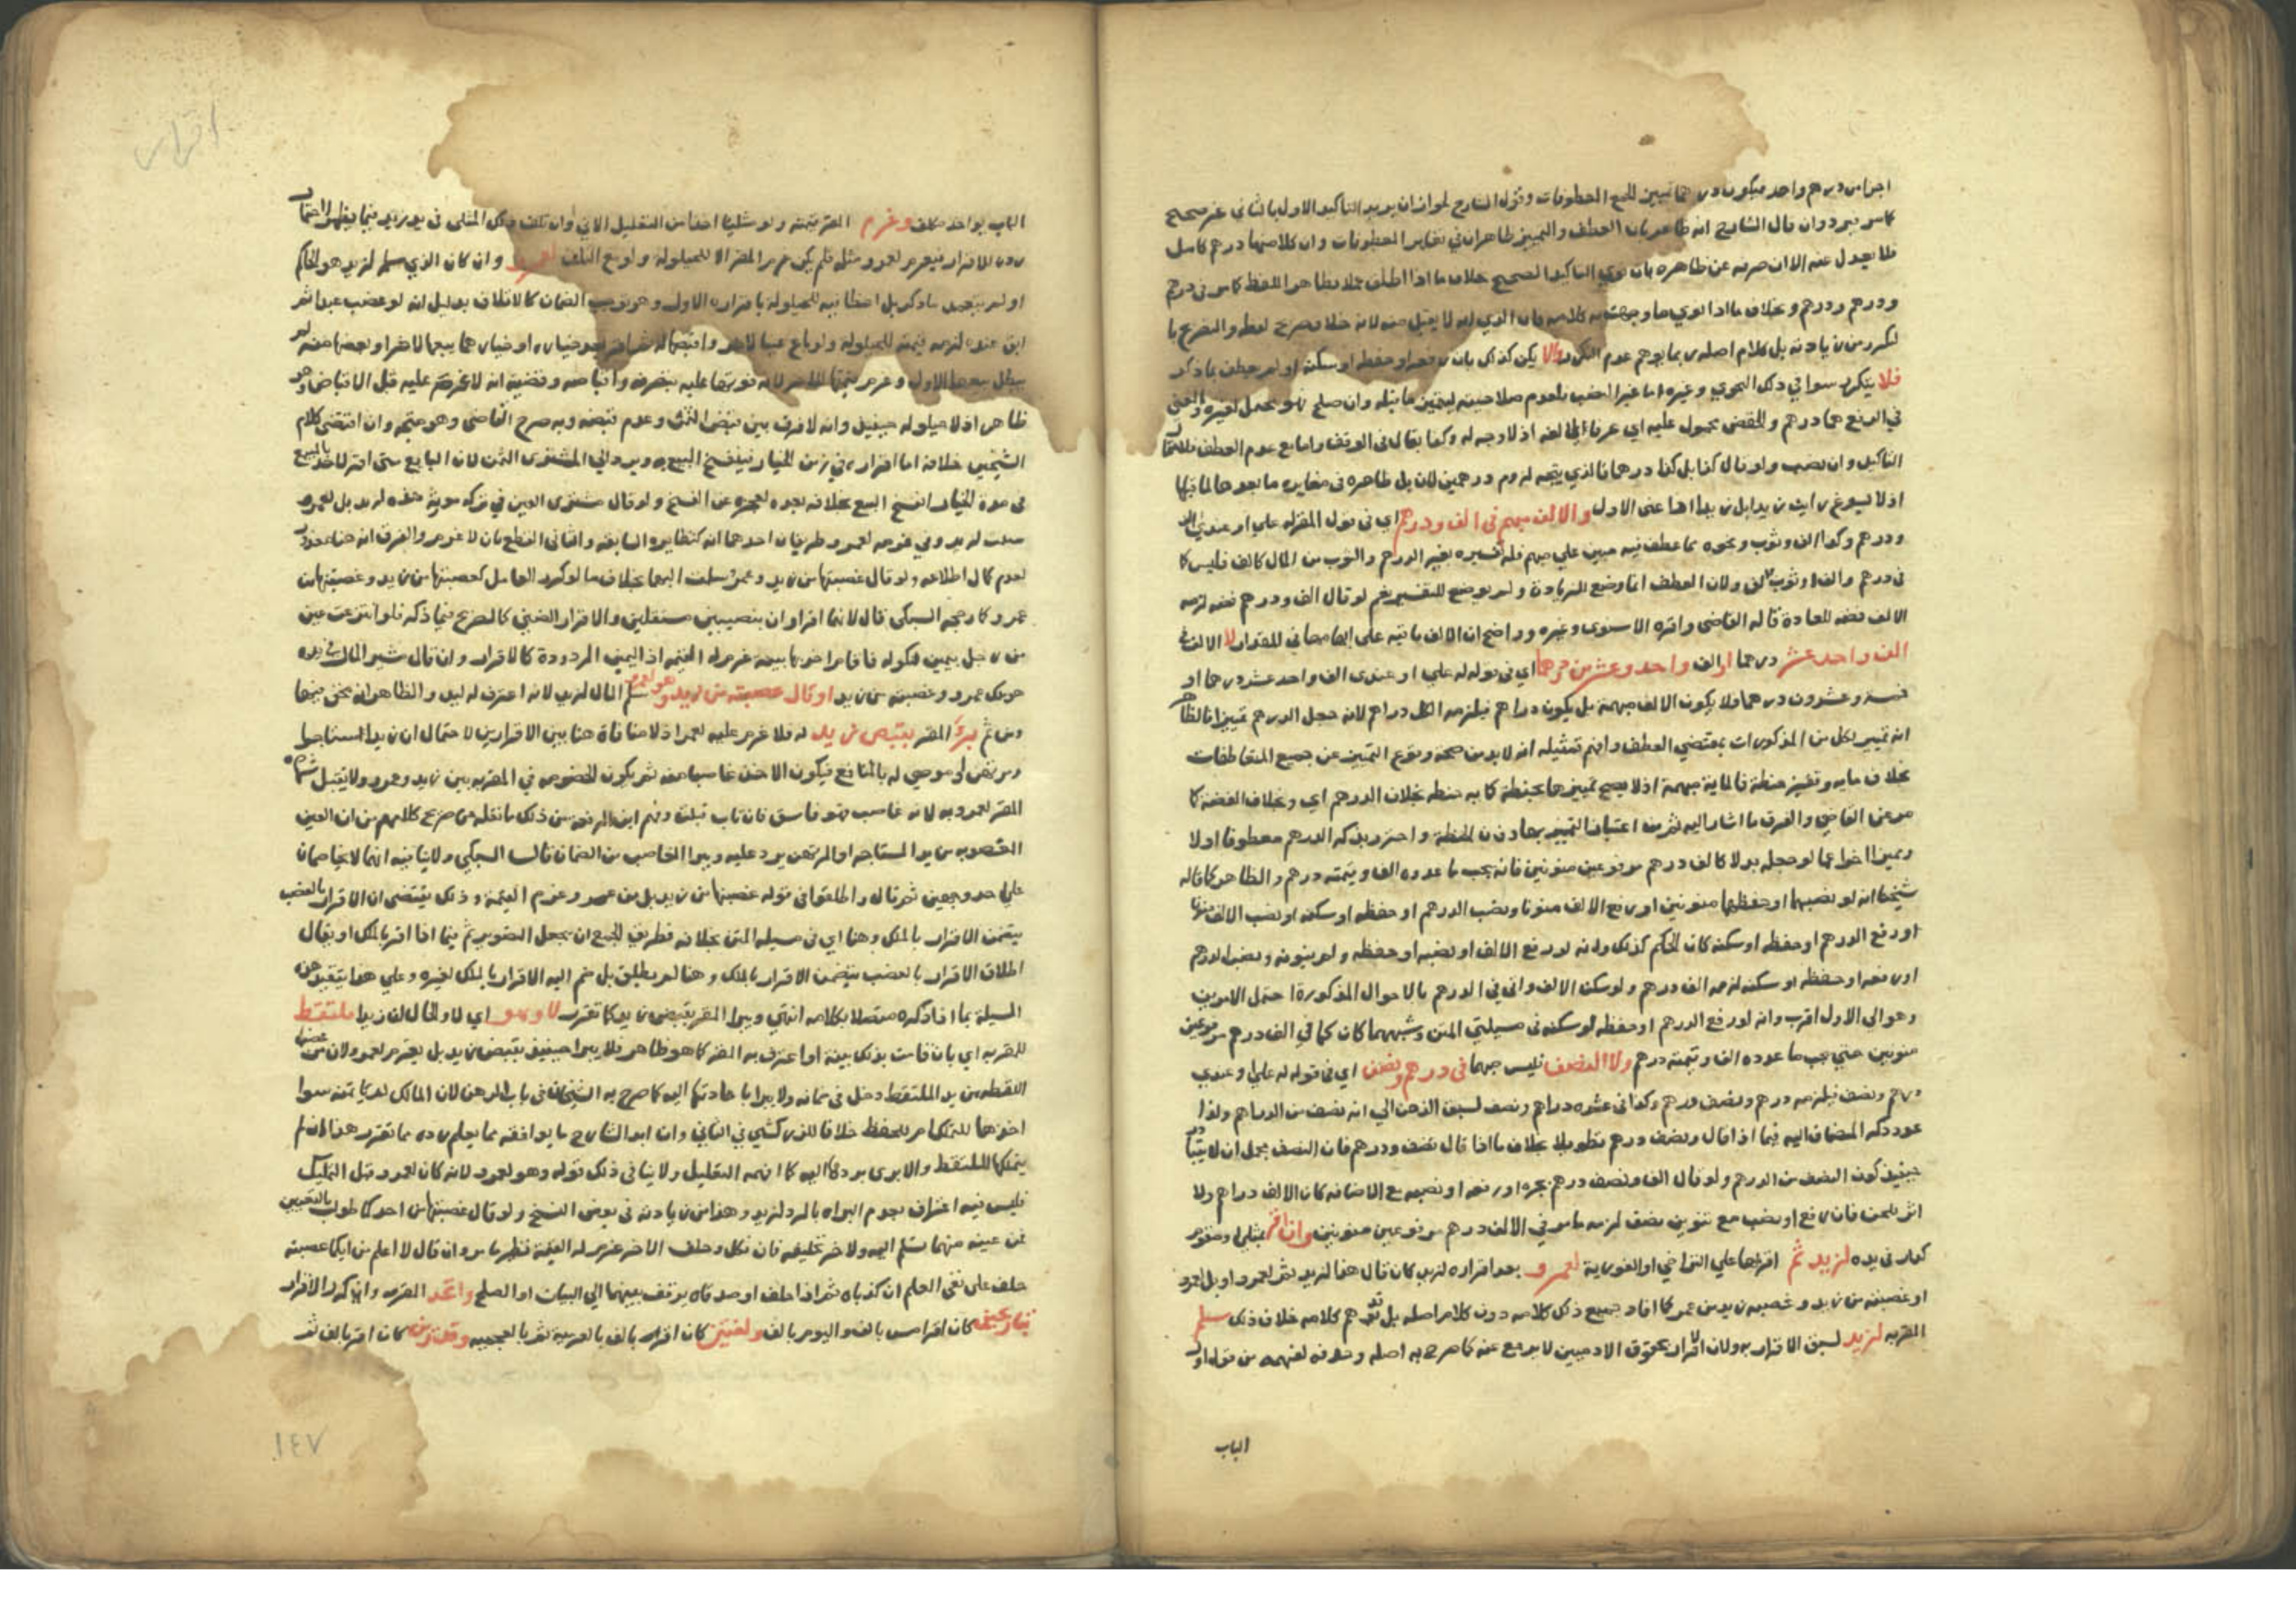 اجزا من درهم واحد فيكون درهما تمييز لجميع المعطوفات وقول الشارح لجواز ان يريد التاكيد الاول بالثاني غير صحيح
كما مر يرد وان قال الشارح انه ظاهر بان العطف والتمييز ظاهران في تغاير المعطوفات وان كلا منهما درهم كامل
فلا يعدل عنه الا ان صرفه عن ظاهره بان نوى التاكيد الصحيح خلاف ما اذا اطلق عملا بظاهر اللفظ كما مر في درهم
ودرهم ودرهم وبخلاف ما اذا نوى
لتكرر من زيادته بل كلام اصله ربما يوهم عدم التكرر والا يكن كذلك بان رفعه او خفضه او سكنه او لم يعطف بما ذكر
فلا يتكرر سوا في ذلك النحوي وغيره اما غير النصب فلعدم صلاحيته لتمييز ما قبله وان صلح
في الرفع هما درهم والخفض محمول عليه اي عرفا اذ لا وجه له وكما يقال في الوقف واما مع عدم العطف
التاكيد وان نصب ولو قال كذا بل كذا درهما فالذي يتجه لزوم درهمين لان بل ظاهرة في مغايرة ما بعدها لما قبلها
اذ لا يسوغ رايت زيدا بل زيدا اذا عنى الاول والالف مبهم في الف ودرهم اي في قول المقر له علي او عندي الف
ودرهم وكذا الف وثوب ونحوه مما عطف فيه مبين على مبهم فله تفسيره بغير الدرهم والثوب من المال كالف فليس كا
في درهم والف او ثوب الف ولان العطف انما وضع للزيادة ولم يوضع للتفسير نعم لو قال الف ودرهم فضة لزمه
الالف فضة للعادة قاله القاضي واقره الاسنوي وغيره وواضح ان الالف باقية على ابهامها في المقدار لا الالف في
الف واحد عشر درهما او الف واحد وعشرين درهما اي في قوله له علي او عندي الف واحد عشر درهما او
خمسة وعشرون درهما ولا يكون الالف مبهمة بل يكون دراهم فيلزمه الكل دراهم لانه جعل الدرهم تمييزا فالظاهر
انه تمييز لكل من المذكورات بمقتضى العطف وافهم تمثيله انه لا بد من صحة وقوع التمييز عن جميع المتعاطفات
بخلاف مايه وقفيز حنطة فالماية مبهمة اذ لا يصح تمييزها بحنطة كما به حنطة بخلاف الدرهم اي وبخلاف الفضة كا
مر عن القاضي والفرق ما اشار اليه
وتمييزا اخرا عما لو جعله بدلا كالف درهم مرفوعين منونين فانه يجب ما عدده الف وقيمته درهم والظاهر كما قاله
شيخنا انه لو نصبهما او خفضهما منونين او رفع الالف منونا ونصب الدرهم او خفضه او سكنه او نصب الالف منونا
او رفع الدرهم او خفضه او سكنه كان الحكم كذلك وانه لو رفع الالف او نصبه او خفضه ولم ينونه ونصب الدرهم
او رفعه او خفضه او سكنه لزمه الف درهم ولو سكن الالف واتى في الدرهم بالاحوال المذكورة احتمل الامرين
وهو الى الاول اقرب وانه لو رفع الدرهم او خفضه او سكنه في مسيلتي المتن وشبههما كان كما في الف درهم مرفوعين
منونين حتى يجب ما عدده الف وقيمته درهم ولا النصف فليس مبهما في درهم ونصف اي في قوله له علي او عندي
درهم ونصف فيلزمه درهم ونصف درهم وكذا في عشرة دراهم ونصف لسبق الذهن الى انه نصف من الدراهم ولذا
عد ذكر المضاف اليه فيما اذا قال ونصف درهم تطويلا بخلاف ما اذا قال نصف ودرهم فان النصف مجمل
حينئذ كون النصف من الدرهم ولو قال الف ونصف درهم بجره او رفعه او نصبه مع الاضافة كان الالف دراهم ولا
اثر للحن فان رفع او نصب مع تنوين نصف لزمه ما مر في الالف درهم مرفوعين منونين وان اقر بمثلي او متقوم
كدار في يده لزيد ثم اقر بها على التراخي او الفورية لعمرو بعد اقراره لزيد كان قال هذا لزيد ثم لعمرو او بل لعمرو
او غصبته من زيد وغصبه زيد من عمرو كما افاد جميع ذلك كلامه دون كلام اصله بل قد يوهم كلامه خلاف ذلك سلم
المقر به لزيد لسبق الاقرار به ولان الاقرار بحقوق الادميين لا يرجع عنه كما صرح به اصله
الباب
الباب بواحد مكلف وغرم المقر قيمته ولو مثليا اخذا من التعليل الاتي وان تلف ذلك المثلي في يد زيد فيما يظهر
رده للاقرار فيغرم لعمرو مثله فلم يكن غرم المقر الا للحيلولة ولو مع التلف لعمرو وان كان الذي سلم لزيد هو الحاكم
او لم يتعمد ما ذكر بل اخطا فيه للحيلولة باقراره الاول وهو يوجب الضمان كالاتلاف بدليل انه لو غصب عبدا ثم
ابق عنده لزمه قيمته للحيلولة ولو باع عينا لاخر واقبضها له ثم اقر بعد خياره او خيارهما ببيعها لاخر او بغصبها منه لم
يبطل بيعها الاول وغرم قيمتها للاخر لانه فوتها عليه بتصرفه واقباضه وقضيته انه لا غرم عليه قبل الاقباض وهو
ظاهر اذ لا حيلولة حينئذ وانه لا فرق بين قبض الثمن وعدم قبضه وبه صرح القاضي وهو متجه وان اقتضى كلام
الشيخين خلافه اما اقراره في زمن الخيار فينفسخ البيع به ويرد الى المشتري الثمن لان البايع متى اقر لاخر بالمبيع
في مدة الخيار انفسخ البيع بخلافه بعده لعجزه عن الفسخ ولو قال مشتري العين في تركة مورثه هذه لزيد بل لعمرو
سلمت لزيد وفي غرمه لعمرو طريقان احدهما انه كنظايره السابقة والثاني القطع بان لا غرم والفرق انه هنا معذور
لعدم كمال اطلاعه ولو قال غصبتها من زيد وعمرو سلمت اليهما بخلاف ما لو كرر العامل كغصبتها من زيد وغصبتها من
عمرو كما رجحه السبكي قال لانهما اقراران بنصيبين مستقلين والاقرار الضمني كالصريح فيما ذكر فلو انتزعت عين
من رجل بيمين نكوله فاقام اخر بها بينة غرم له القيمة اذ اليمين المردودة كالاقرار وان قال شير المال في يده
هو ملك عمرو وغصبته من زيد او قال غصبته من زيد وهو لعمرو سلم المال لزيد لانه اعترف له ليد والظاهر انه محق فيها
ومن ثم برئ المقر بقبض زيد له فلا غرم عليه لعمرو اذ لا منافاة هنا بين الاقرارين لاحتمال ان زيدا استاجر
ومرتهن او موصى له بالمنافع فيكون الاخذ غاصبا منه ثم يكون الخصومة في المقر به بين زيد وعمرو ولا تقبل شهادة
المقر لعمرو به لانه غاصب فهو فاسق فان تاب قبلت وفهم ابن الرفعة من ذلك ما نقله من صريح كلامهم من ان العين
المغصوبة من يد المستاجر او المرتهن يرد عليه ويبرا الغاصب من الضمان قال السبكي ولا ينافيه انهما لا يخاصمان
على احد وجهين ثم قال واطلقوا في قوله غصبتها من زيد بل من عمرو وغرم القيمة وذلك يقتضي ان الاقرار بالغصب
يتضمن الاقرار بالملك وهنا اي في مسيلة المتن بخلافه فطريق الجمع ان يجعل التصوير ثم فيما اذا اقر بالملك او يقال
اطلاق الاقرار بالغصب يتضمن الاقرار بالملك وهنا لم يطلق بل ضم اليه الاقرار بالملك لغيره وعلى هذا يتقيد هذه
المسيلة بما اذا ذكره متصلا بكلامه انتهى ويبرا المقر بقبض زيد كما تقرر لا وهو اي لا والحال ان زيدا ملتقط
للمقر به اي بان قامت بذلك بينة او اعترف به المقر كما هو ظاهر فلا يبرا حينئذ بقبض زيد بل يغرم لعمرو لان من غصب
اللقطة من يد الملتقط دخل في ضمانه ولا يبرا باعادتها اليه كما صرح به الشيخان في باب الرهن لان المالك لم ياتمنه سوا
اخذها للتملك ام للحفظ خلافا للزركشي في الثاني وان ابدا الشارح ما يوافقه مما يعلم رده مما تقرر هذا ان لم
يتملكها الملتقط والا برئ بردها اليه كما افهمه التعليل ولا ينافي ذلك قوله وهو لعمرو لانه كان لعمرو قبل التملك
فليس فيه اعتراف بعدم البراه بالرد لزيد وهذا من زيادته في بعض النسخ ولو قال غصبتها من احدكما طولب بالتعيين
فمن عينه منهما سلم اليه ولاخر تحليفه فان نكل وحلف الاخر غرم له القيمة نظير ما مر وان قال لا اعلم من ايكما غصبته
حلف على نفي العلم ان كذباه ثم اذا حلف او صدقاه يوقف بينهما الى البيان او الصلح واتحد المقر به وان كرر الاقرار
بتاريخين كان اقر امس بالف واليوم بالف ولغتين كان اقر بالف بالعربية ثم بالعجمية كان اقر بالف ثم
١٤٧